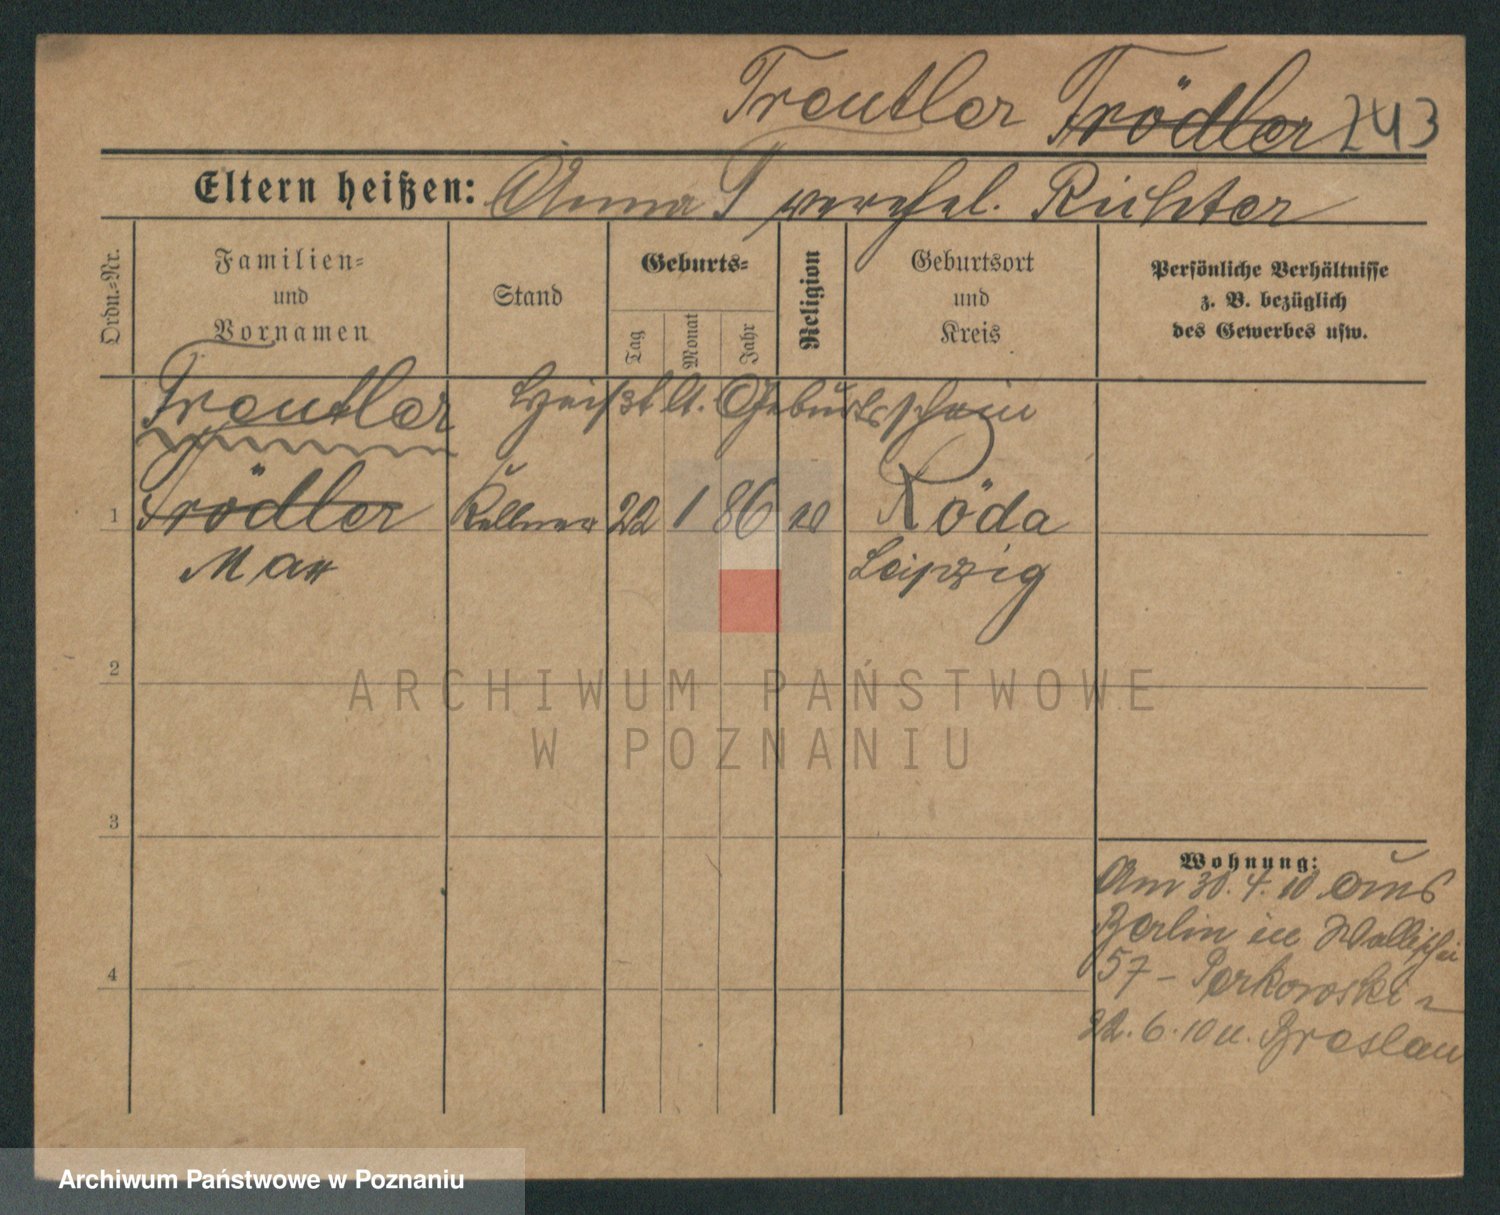 Treutler Trödler 243
Eltern heißen: Anna T verehel. Richter
Ordn.-Nr.
Familien-
und
Vornamen
Stand
Geburts-
Tag
Monat
Jahr
Religion
Geburtsort
und
Kreis
Persönliche Verhältnisse
z. B. bezüglich
des Gewerbes usw.
Treutler heißt lt. Geburtsschein
1 Trödler Kellner 22 1 86 Röda
Max Leipzig
2
3
4
Wohnung:
Am 30.4.10 aus
Berlin in Wallischei
57 - Perkowski -
22.6.10 n. Breslau
ARCHIWUM PAŃSTWOWE
W POZNANIU
Archiwum Państwowe w Poznaniu